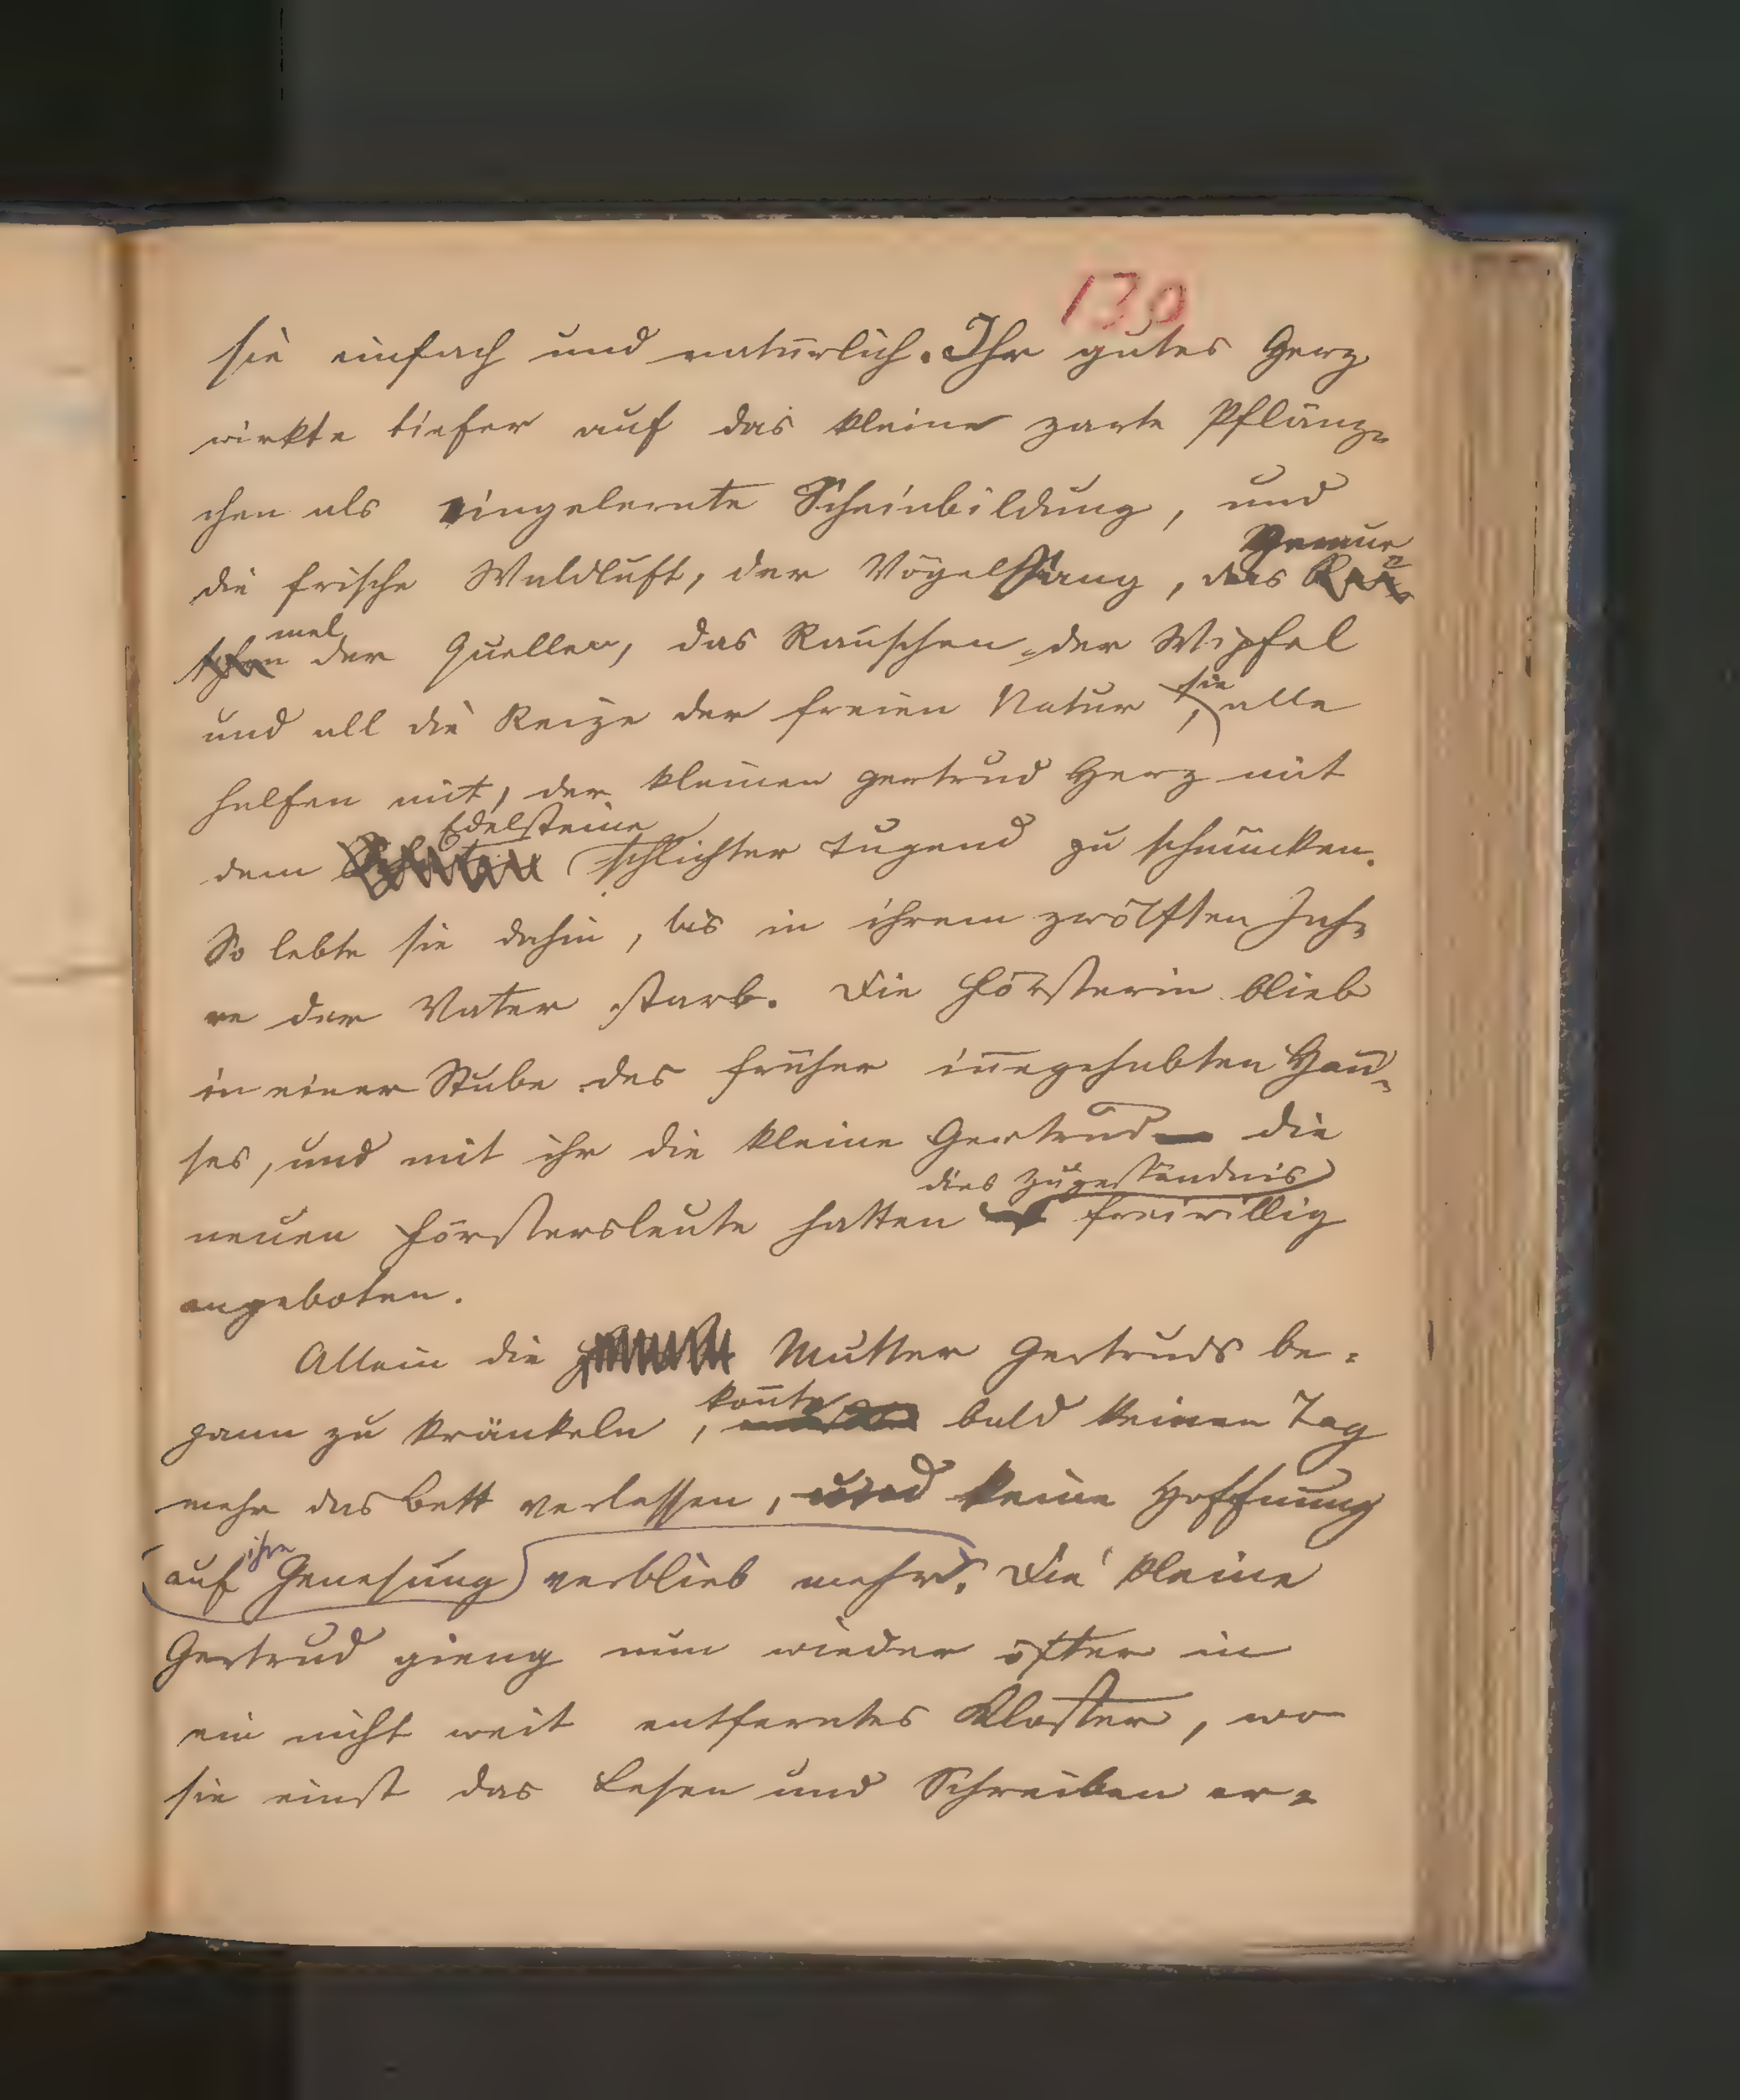 130
sie einfach und natürlich. Ihr gutes Herz
wirkte tiefer auf das kleine zarte Pflänz-
chen als eingelernte Scheinbildung, und
Gemur
die frische Waldluft, der Vögel Sang, das Rau
mel
schen der Quellen, das Rauschen der Wipfel
sie
und all die Reize der freien Natur, alle
halfen mit, der kleinen Gertrud Herz mit
Edelsteine
dem schlichter Tugend zu schmücken.
So lebte sie dahin, bis in ihrem zwölften Jah-
re der Vater starb. Die Försterin blieb
in einer Stube des früher in̅egehabten Hau-
ses, und mit ihr die kleine Gertrud – die
dies Zugeständnis
neuen Förstersleute hatten freiwillig
angeboten.
Allein die Mutter Gertruds be-
kon̅te
gann zu kränkeln, bald keinen Tag
mehr das Bett verlassen, und keine Hoffnung
ihre
auf Genesung verblieb mehr. Die kleine
Gertrud gieng nun wieder öfter in
ein nicht weit entferntes Kloster, wo
sie einst das Lesen und Schreiben er-